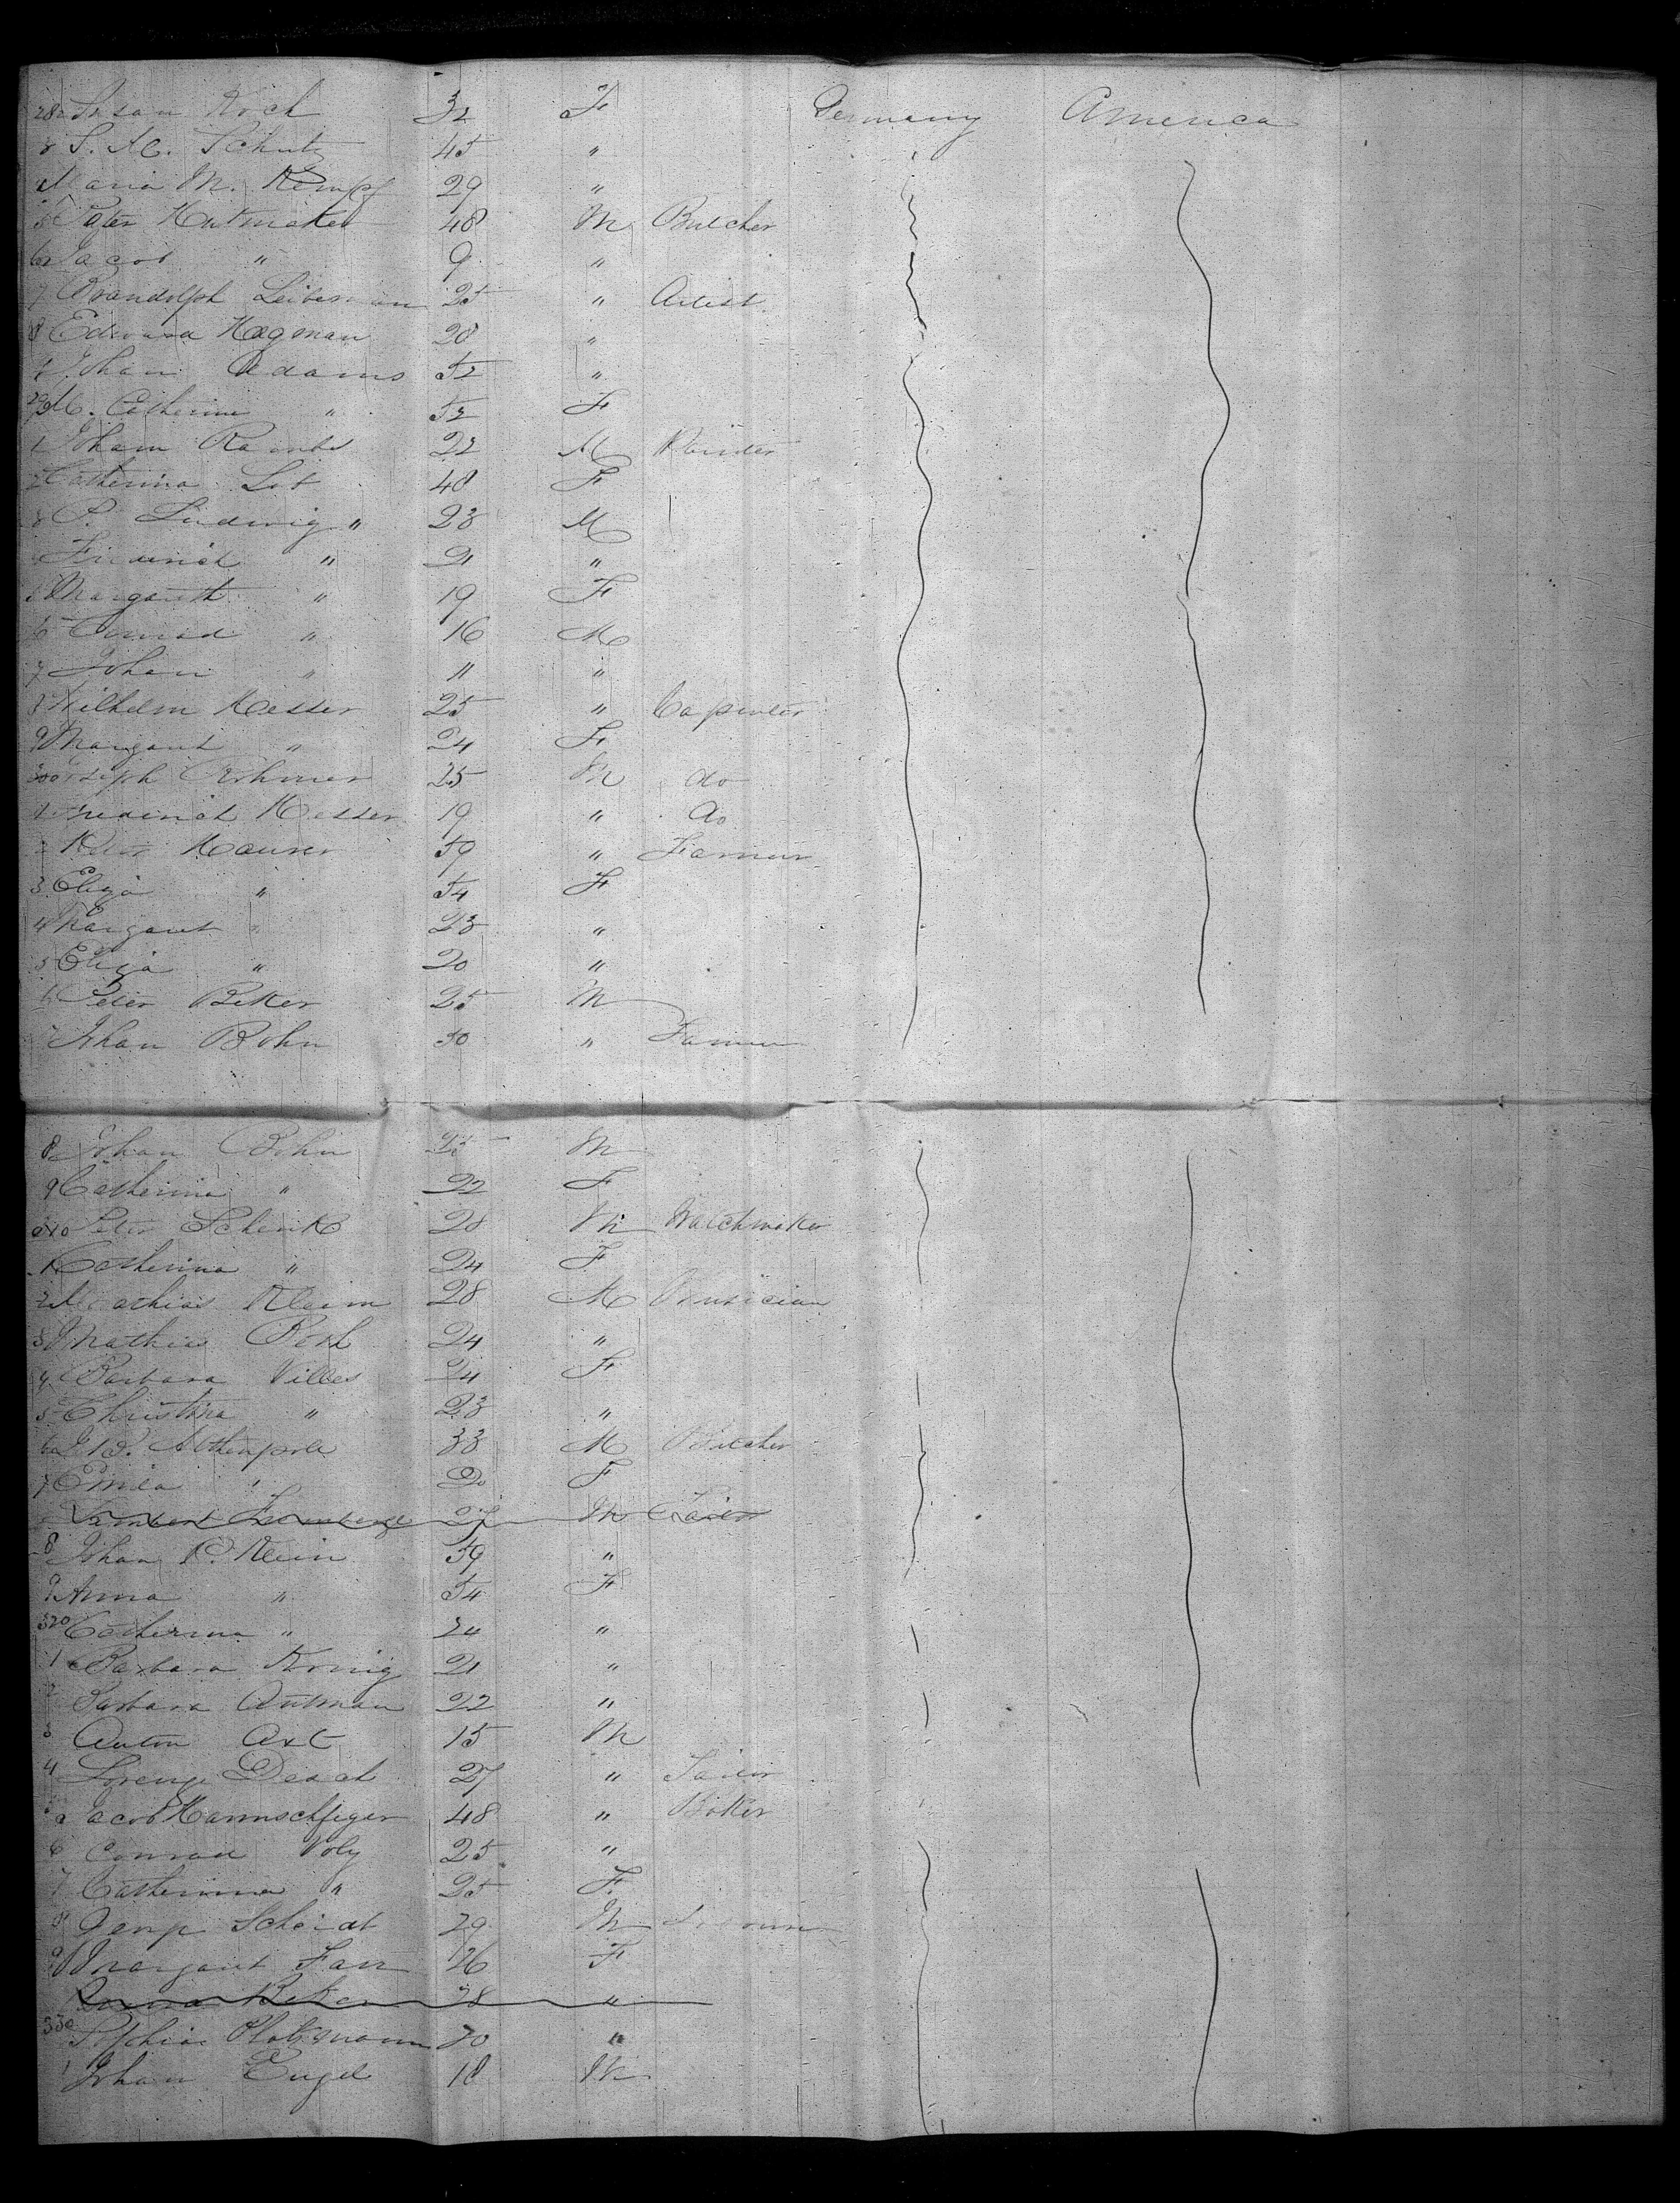 282 Susan Koch 32 F Germany America
3 S. M. Schutz 45 "
4 Maria M. Kempf 29 "
5 Peter Hutmaker 48 M Butcher
6 Jacob " 9 "
7 Brandolph Leibesman 25 " Artist
8 Edward Hagman 28 "
9 Johan Adams 52 "
290 M. Catherine " 52 F
1 Joham Rambs 22 M
2 Catherina Lot 48 F
3 P. Ludwig " 23 M
4 Friderich " 21 "
5 Margareth " 19 F
6 Conrad " 16 M
7 Johan " 11 "
8 Wilhelm Messer 25 " Capenter
9 Margaret " 24 F
300 Joseph Rohmer 25 M do
1 Frederich Messer 19 " do
2 Peter Maurer 59 " Farmer
3 Eliza " 54 F
4 Margaret " 23 "
5 Eliza " 20 "
6 Peter Beker 25 M
7 Johan Bohn 50 " Farmer
8 Johan Bohn 25 M
9 Catherina " 22 F
310 Peter Schenk 28 M Watchmaker
1 Catherina " 24 F
2 Mathias Kleim 28 M Musician
3 Mathias 24 "
4 Barbara Villes 24 F
5 Christina " 23 "
6 33 M Butcher
7 Emila " 20 F
Lambert 27 M Tailor
8 Johan P. Klein 59 "
9 Anna " 54 F
320 Catherina " 24 "
1 Barbara Konig 21 "
2 Barbara Autman 22 "
3 Anton Axt 15 M
4 Lorenz Desch 27 " Tailor
5 Jacob Harnischfeger 48 " Baker
6 Conrad Voly 25 "
7 Catherina " 25 F
8 Georg Scheidt 29 M
9 Margaret Farr 26 F
Anna Beker 28 "
330 Sophia Platzmann 20 "
1 Johan Engel 18 M